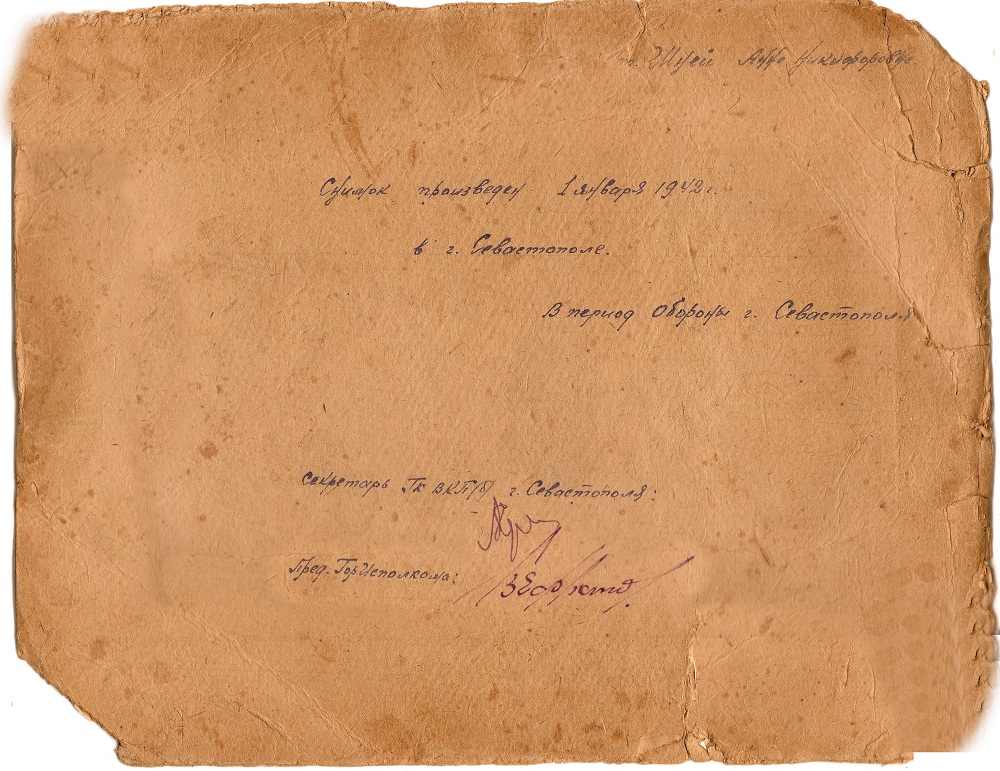 т. Шней Анне Никифоровне
Снимок произведен 1 января 1942 г.
в г. Севастополе.
В период Обороны г. Севастополя
Секретарь ГК ВКП(б) г. Севастополя:
Пред. ГорИсполкома: